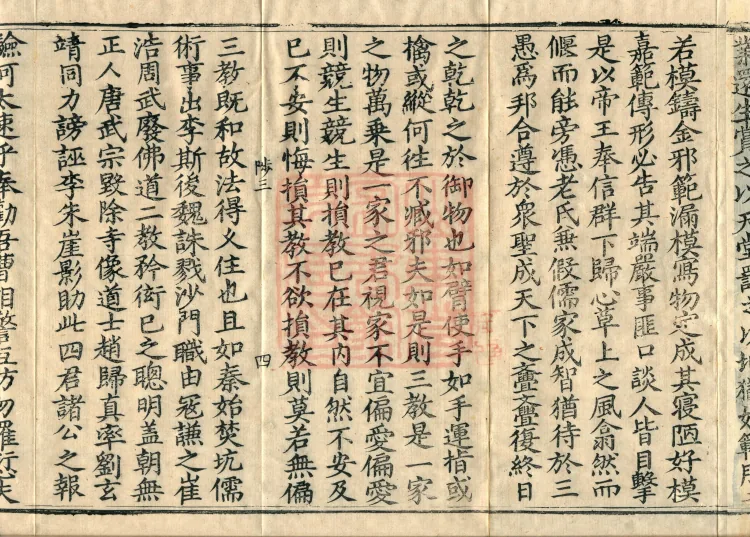 若模鑄金邪範漏模寫物定成其寢陋好模
嘉範傳形必告其端嚴事匪口談人皆目擊
是以帝王奉信群下歸心草上之風翕然而
偃而能旁憑老氏兼假儒家成智猶待於三
愚爲邦合遵於衆聖成天下之亹亹復終日
之乾乾之於御物也如臂使手如手運指或
擒或縱何往不臧邪夫如是則三教是一家
之物萬乘是一家之君視家不宜偏愛偏愛
則競生競生則損教已在其内自然不安及
已不安則悔損其教不欲損教則莫若無偏
陟三 四
三教既和故法得乆住也且如秦始焚坑儒
術事出李斯後魏誅戮沙門職由寇謙之崔
浩周武廢佛道二教矜衒已之聰明蓋朝無
正人唐武宗毁除寺像道士趙歸真率劉玄
靖同力謗誣李朱崖影助此四君諸公之報
驗何太速乎奉勸吾曹相警互防勿罹愆失